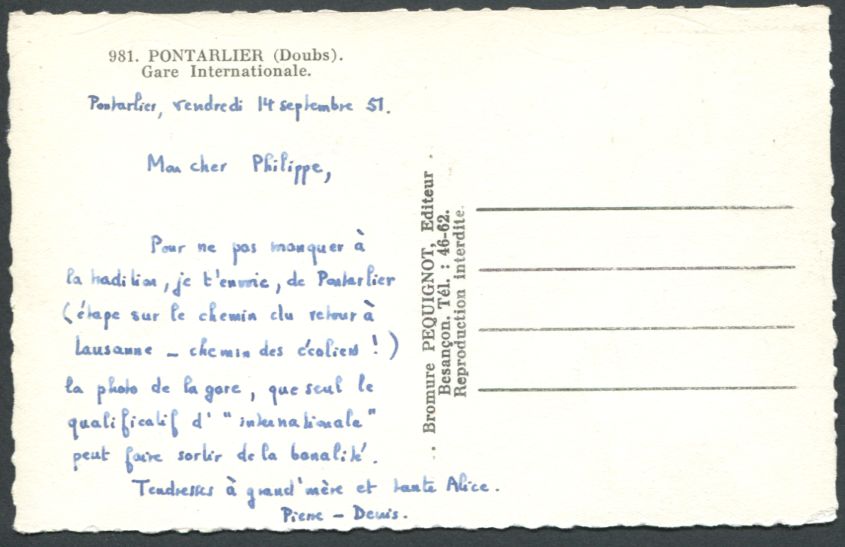 981. PONTARLIER (Doubs).
Gare Internationale.
Pontarlier, vendredi 14 septembre 51.
Mon cher Philippe,
Pour ne pas manquer à
la tradition, je t'envoie, de Pontarlier
(étape sur le chemin du retour à
Lausanne – chemin des écoliers !)
la photo de la gare, que seul le
qualificatif d' "internationale"
peut faire sortir de la banalité.
Tendresses à grand'mère et tante Alice.
Pierre – Denis.
Bromure PEQUIGNOT, Editeur
Besançon. Tél. : 46-62.
Reproduction interdite.